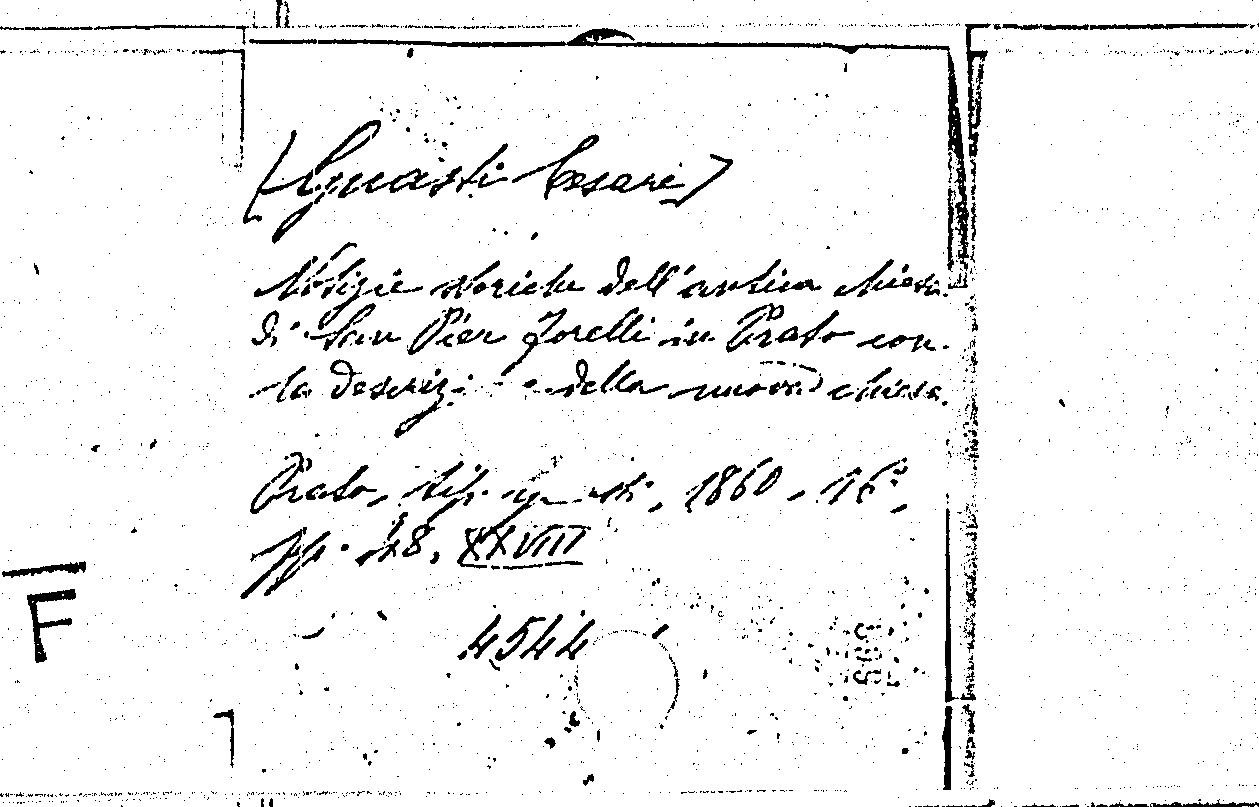 [Guasti Cesare]
Notizie storiche dell'antica chiesa
di San Pier Forelli in Prato con
la descriz: e della nuova chiesa.
Prato, tip. Guasti, 1860, 16°,
pp. 48, XXVIII
4544
F